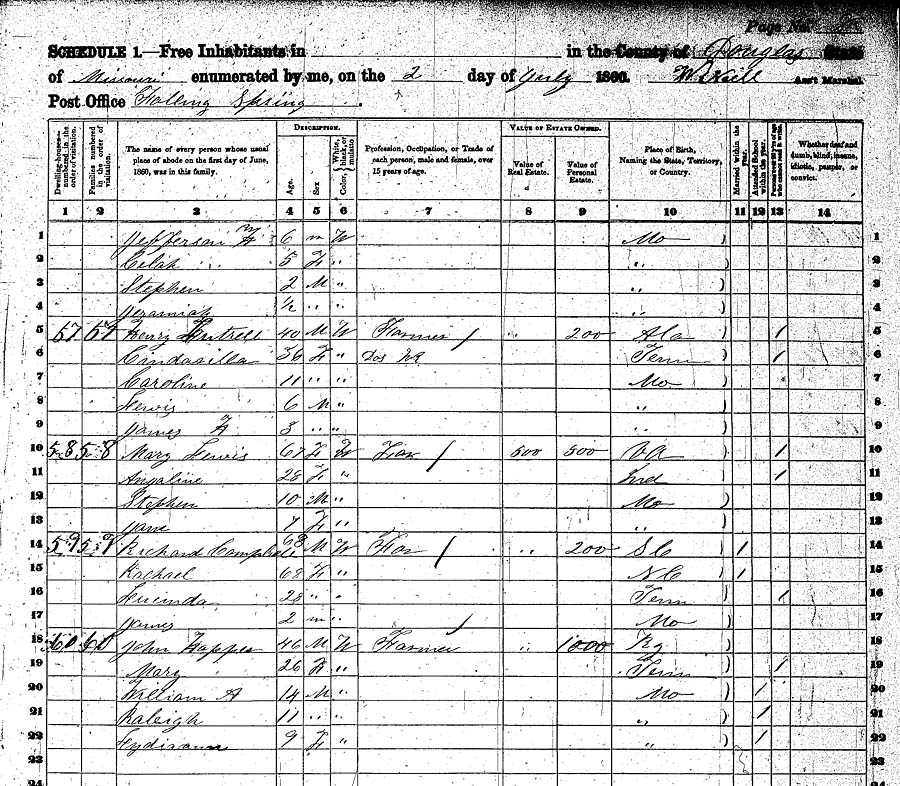 Page No.
SCHEDULE 1.—Free Inhabitants in in the County of Douglas State
of Missouri enumerated by me, on the 2 day of July 1860. Ass't Marshal
Post Office Falling Spring
Dwelling-houses—numbered in the order of visitation.
Families numbered in the order of visitation.
The name of every person whose usual place of abode on the first day of June, 1860, was in this family.
DESCRIPTION.
Age.
Sex
Color, White, black, or mulatto
Profession, Occupation, or Trade of each person, male and female, over 15 years of age.
VALUE OF ESTATE OWNED.
Value of Real Estate.
Value of Personal Estate.
Place of Birth, Naming the State, Territory, or Country.
Married within the year.
Attended School within the year.
Whether deaf and dumb, blind, insane, idiotic, pauper, or convict.
1 2 3 4 5 6 7 8 9 10 11 12 13 14
1 Jefferson 6 m W Mo 1
2 5 F " " 2
3 Stephen 2 M " " 3
4 Jeremiah ½ " " " 4
5 57 57 Henry 40 M W Farmer / " 200 Ala 1 5
6 36 F " Tenn 1 6
7 Caroline 11 " " Mo 7
8 Lewis 6 M " " 8
9 James F 3 " " " 9
10 58 58 Mary Lewis 67 F W Far / 500 500 VA 1 10
11 Angaline 28 F " Ind 1 11
12 Stephen 10 M " Mo 12
13 Jane 7 F " " 13
14 59 59 Richard Campbell 68 M W Far / " 200 S C 1 14
15 Rachael 68 F " N C 1 15
16 Lucinda 28 " " Tenn 1 16
17 James 2 m " Mo 17
18 60 60 John 46 M W Farmer " 1000 Ky 18
19 Mary 26 F " Tenn 1 19
20 William A 14 M " Mo 1 20
21 Raleigh 11 " " " 1 21
22 9 F " " 1 22
23 23
24 24